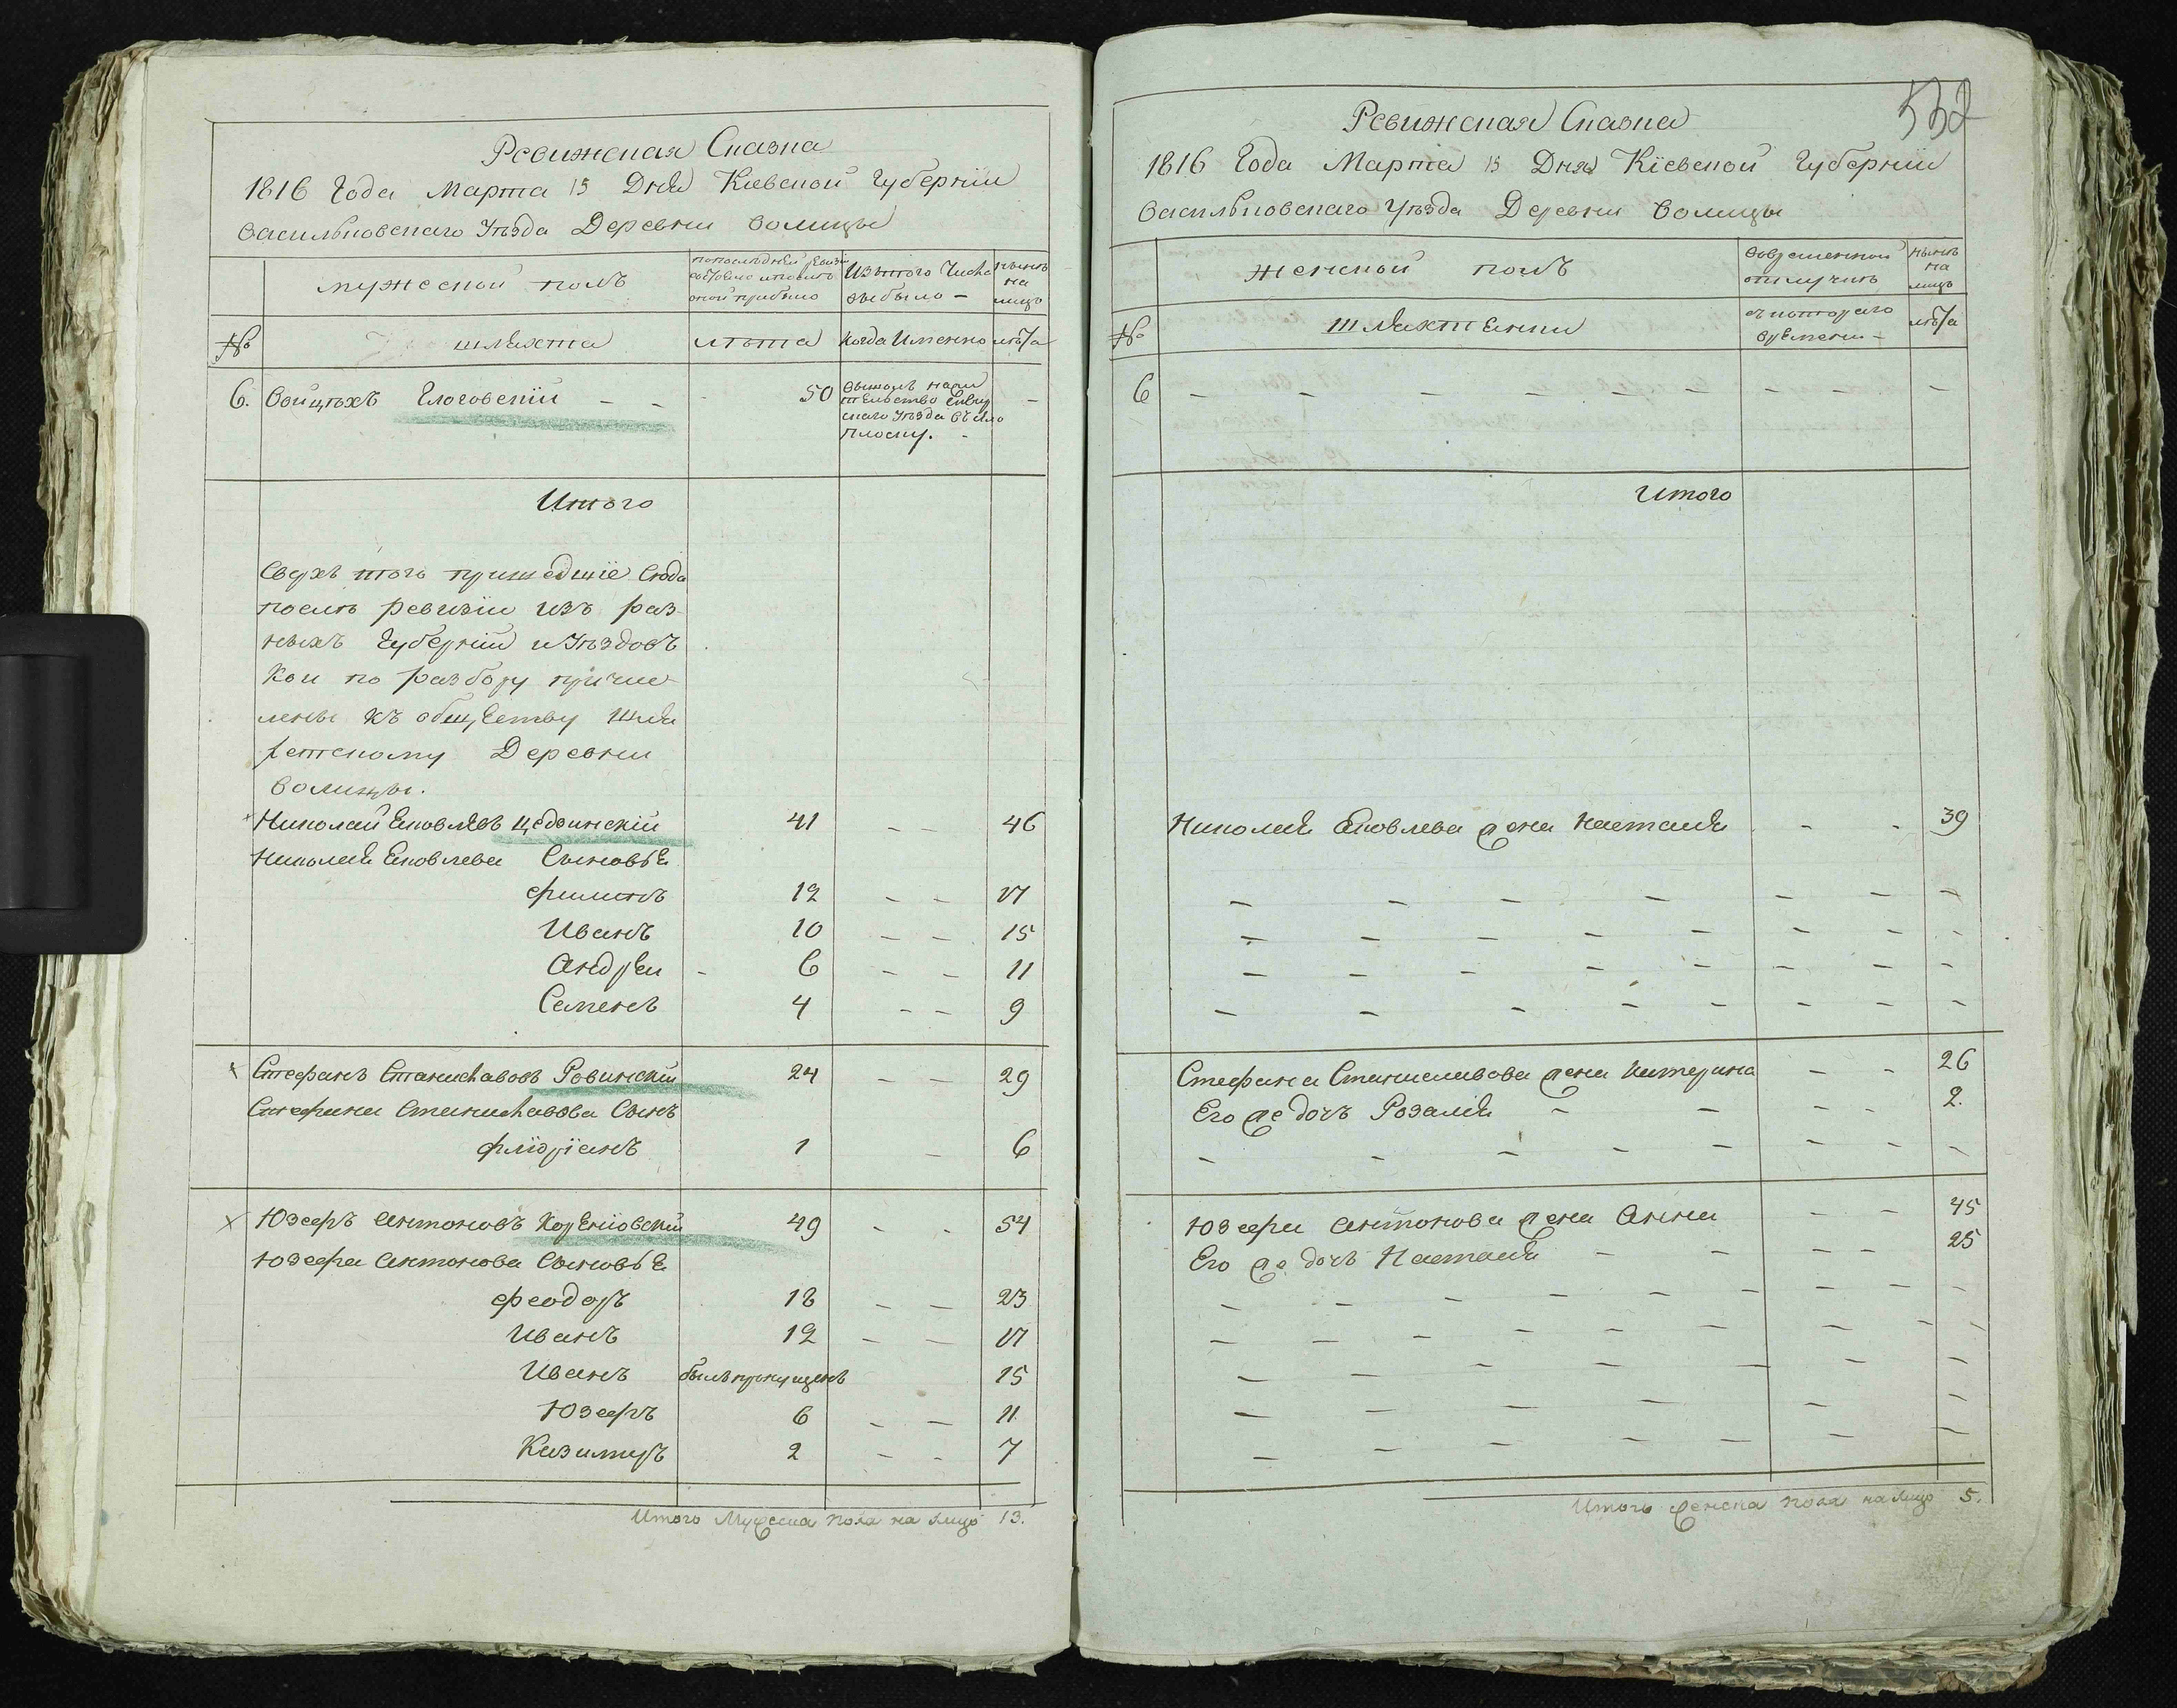 Ревижская Сказка
1816 Года Марта 15 Дня Киевской Губернии
Васильковскаго Уѣзда Деревни Волицы
мужеской полъ
по последней ревизи состояло и после оной прибыло
Изъ того Числа выбыло –
нынѣ на лицо
№ шляхта лѣта когда Именно лѣта
6. Войцѣхъ Глоговскій – – - 50 –
Плоску. -
Итого
Сверхъ того пришедшіе Сюда
послѣ ревизіи изъ раз
ныхъ Губерній и Уѣздовъ
Кои по разбору причис
лены къ обществу Шля
хетскому Деревни
Волицы.
Николай Яковлевъ Цедвинскій 41 – – 46
Николая Яковлева Сыновья
Филипъ 12 – – 17
Иванъ 10 – – 15
Андреи - 6 – – 11
Семенъ 4 – – 9
Стефанъ Станиславовъ Ровинскій 24 – – 29
Стефана Станиславова Сынъ
Флоріанъ 1 – 6
Юзефъ Антоновъ Корженіовскій 49 - - 54
Юзефа Антонова Сыновья
Феодоръ 18 – – 23
Иванъ 12 – – 17
Иванъ былъ пропущенъ 15
Юзефъ 6 – – 11
Казимиръ 2 – – 7
Итого Мужеска пола на лицо 13.
532
Ревижская Сказка
1816 Года Марта 15 Дня Кіевской Губерніи
Васильковскаго Уѣзда Деревни Волицы
женской полъ
во временной отлучкѣ
нынѣ на лицо
№ шляхтянки
съ котораго времени –
лѣта
6 – – – – – – – – – –
Итого
Николая Яковлева жена Настасия - - 39
Стефана Станиславова жена Катерина – - 26
Его же дочь Розалія – – – - 2.
Юзефа Антонова жена Анна – – 45
Его же дочь Настасия – – – – 25
Итого женска пола на лицо 5.